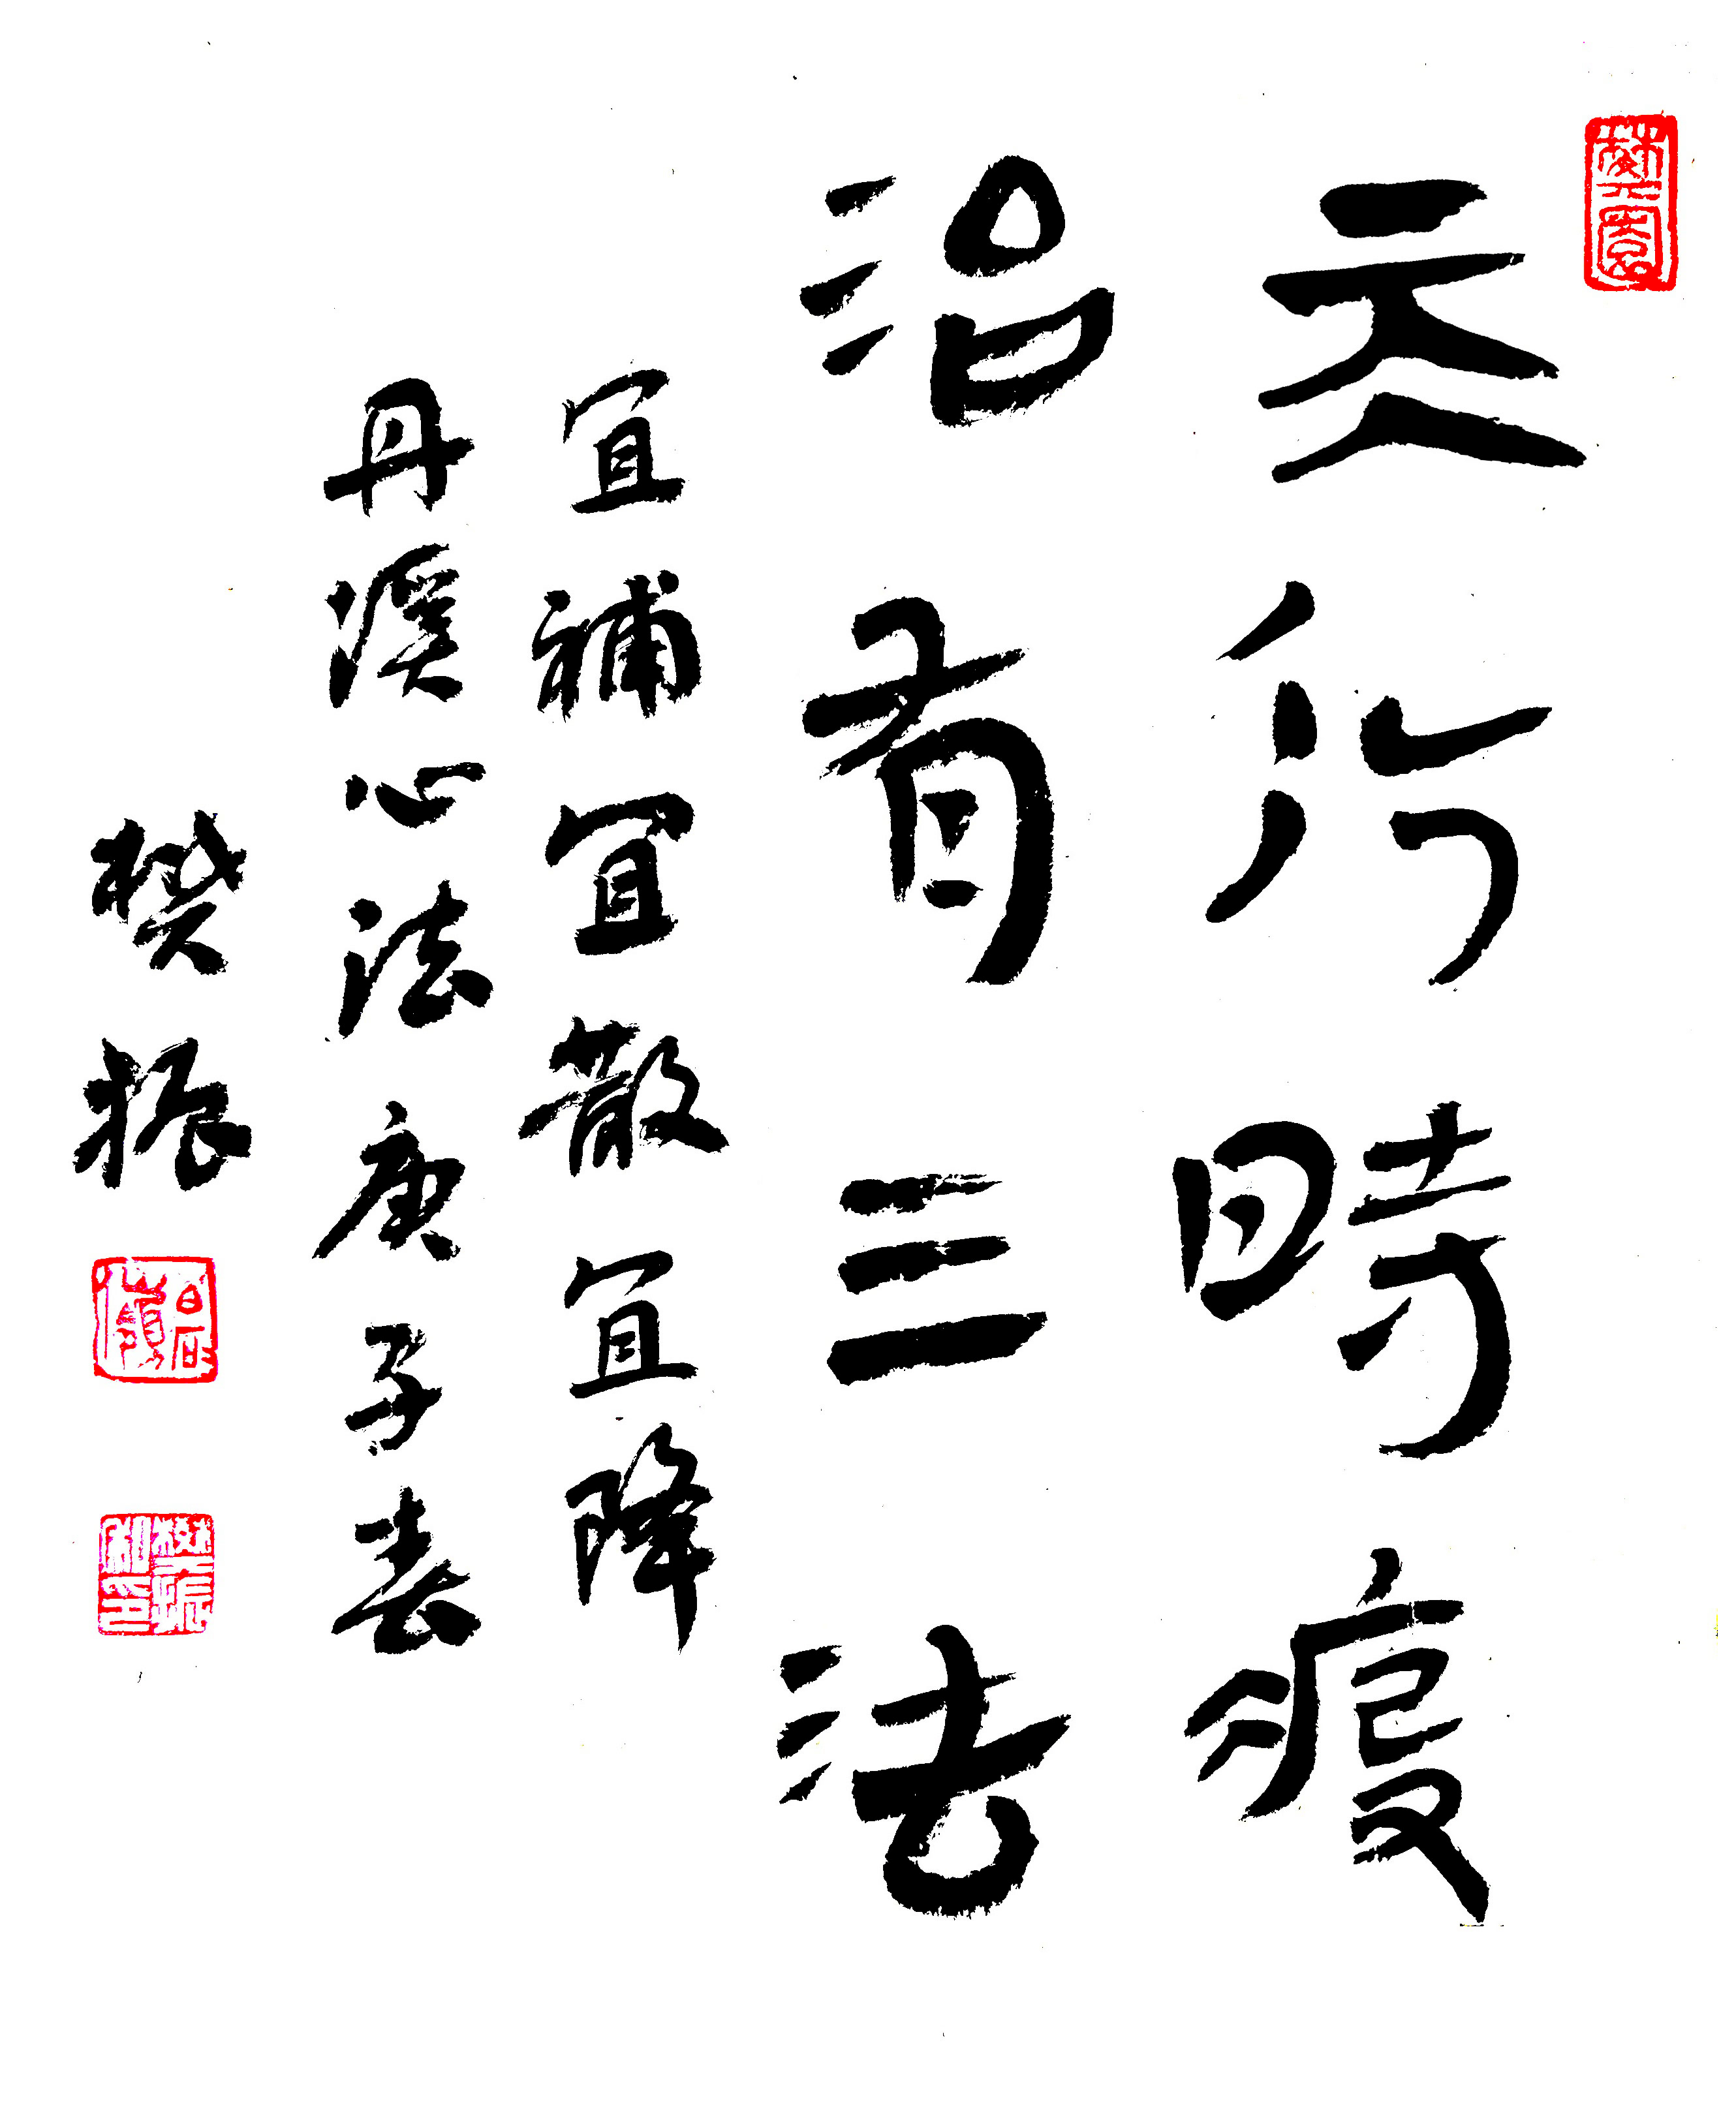 天行時疫
治有三法
宜補宜散宜降
丹溪心法庚子春
樊振
樊振私印